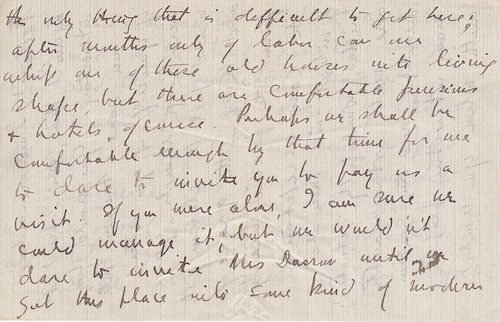 the only thing that is difficult to get here;
after months only of labor can one
whip one of these old houses into living
shape, but there are comfortable pensions
+ hotels, of course. Perhaps we shall be
comfortable enough by that time for me
to dare to invite you to pay us a
visit. If you were alone, I am sure we
could manage it, but we wouldn't
dare to invite Mrs Darrow until we
get this place into some kind of modern